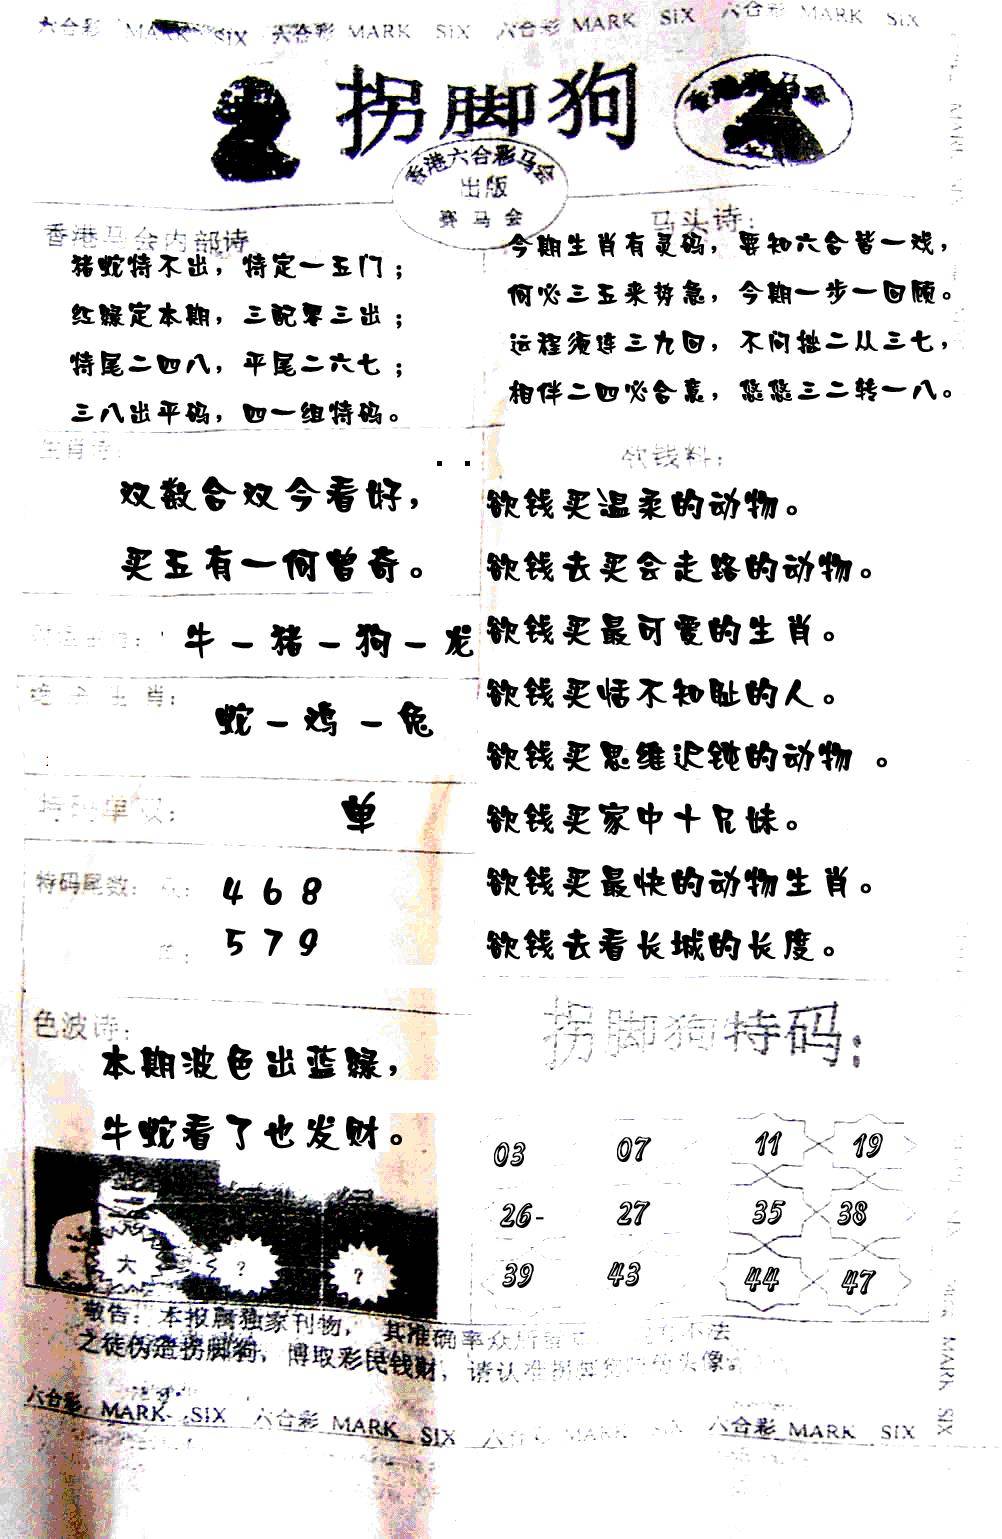 六合彩 MARK SIX 六合彩 MARK SIX 六合彩 MARK SIX 六合彩 MARK SIX
拐脚狗
香港六合彩马会
出版
赛马会
香港马会内部诗
猪蛇特不出，特定一五门；
红绿定本期，三配零三出；
特尾二四八，平尾二六七；
三八出平码，四一组特码。
马头诗：
今期生肖有灵码，要知六合皆一戏，
何必三五来势急，今期一步一回顾。
运程须连三九回，不问拙二从三七，
相伴二四必合意，悠悠三二转一八。
生肖诗：
双数合双今看好，
买五有一何曾奇。
牛－猪－狗－龙
生肖：
蛇－鸡－兔
特码单双：
单
特码尾数：
4 6 8
5 7 9
色波诗：
本期波色出蓝绿，
牛蛇看了也发财。
欲钱料：
欲钱买温柔的动物。
欲钱去买会走路的动物。
欲钱买最可爱的生肖。
欲钱买恬不知耻的人。
欲钱买思维迟钝的动物。
欲钱买家中十兄妹。
欲钱买最快的动物生肖。
欲钱去看长城的长度。
拐脚狗特码：
03 07 11 19
26- 27 35 38
39 43 44 47
大 ? ?
敬告：本报属独家刊物，其准确率众所 不法
之徒伪造拐脚狗，博取彩民钱财，请认准拐脚狗 头像。
六合彩 MARK SIX 六合彩 MARK SIX 六合彩 MARK SIX 六合彩 MARK SIX
MARK SIX